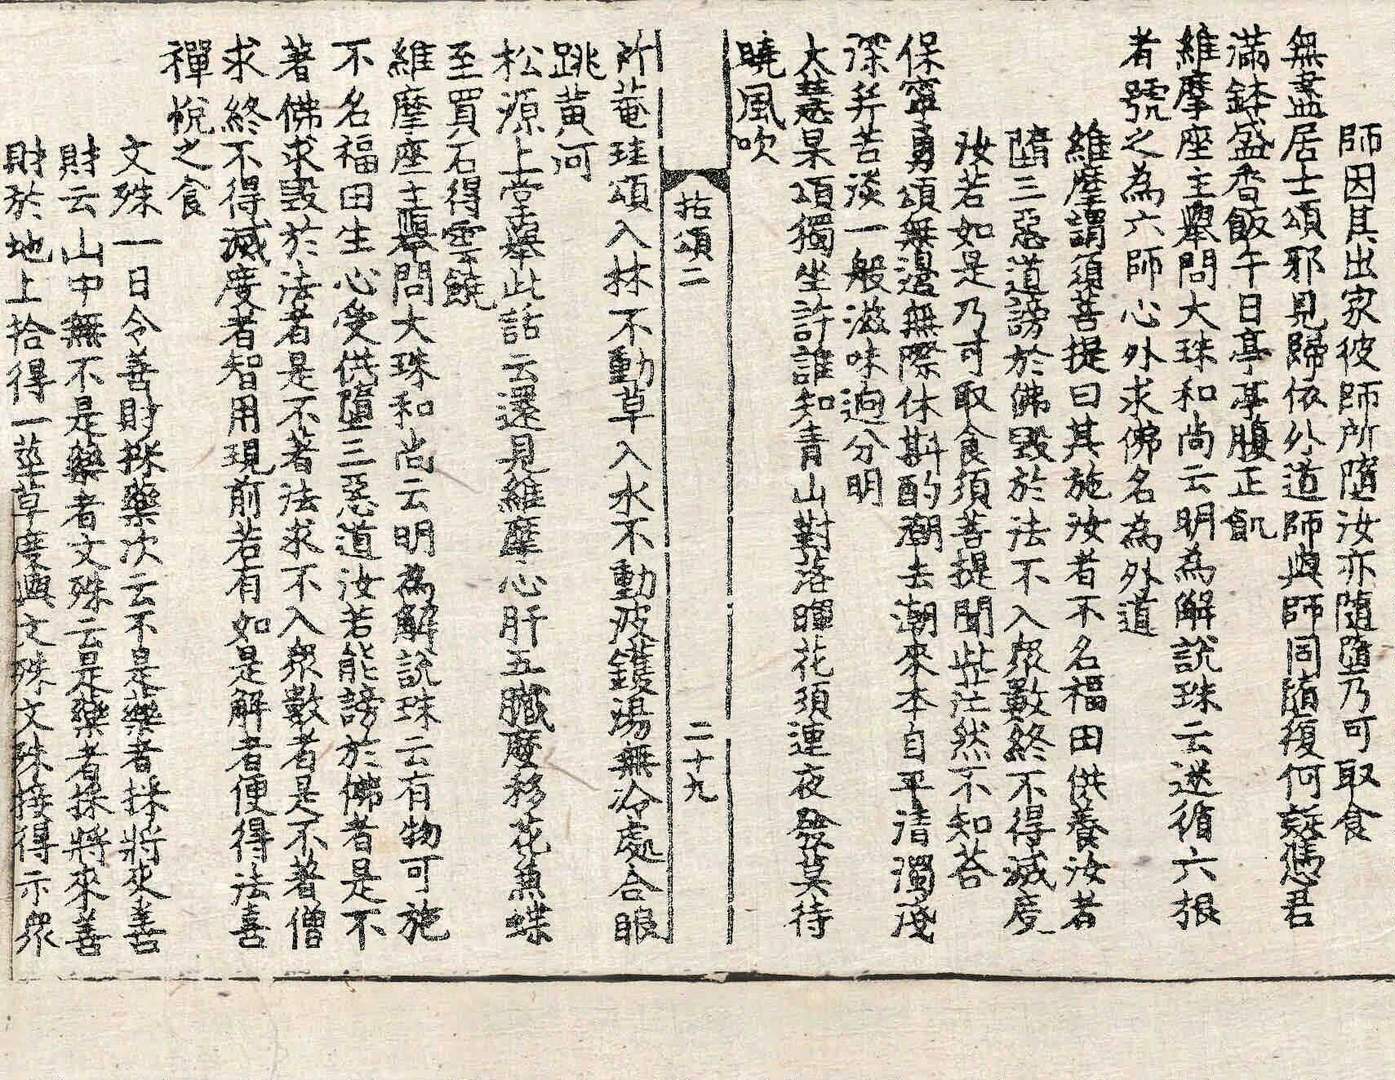 師因其出家彼師所墮汝亦隨墮乃可取食
無盡居士頌邪見歸依外道師與師同墮復何疑憑君
滿鉢盛香飯午日亭亭腹正飢
維摩座主舉問大珠和尚云明為解說珠云迷循六根
者號之為六師心外求佛名為外道
維摩謂須菩提曰其施汝者不名福田供養汝者
墮三惡道謗於佛毀於法不入衆數終不得滅度
汝若如是乃可取食須菩提聞此茫然不知荅
保寧勇頌無邊無際休斟酌潮去潮來本自平清濁淺
深并苦淡一般滋味逈分明
大慧杲頌獨坐許誰知青山對落暉花須連夜發莫待
曉風吹
拈頌二
二十九
所菴珪頌入林不動草入水不動波鑊湯無冷處合眼
跳黃河
松源上堂舉此話云還見維摩心肝五臟麽移花兼蝶
至買石得雲饒
維摩座主舉問大珠和尚云明為解說珠云有物可施
不名福田生心受供墮三惡道汝若能謗於佛者是不
著佛求毀於法者是不著法求不入衆數者是不著僧
求終不得滅度者智用現前若有如是解者便得法喜
禪悅之食
文殊一日令善財採藥次云不是藥者採將來善
財云山中無不是藥者文殊云是藥者採將來善
財於地上拾得一莖草度與文殊文殊接得示衆